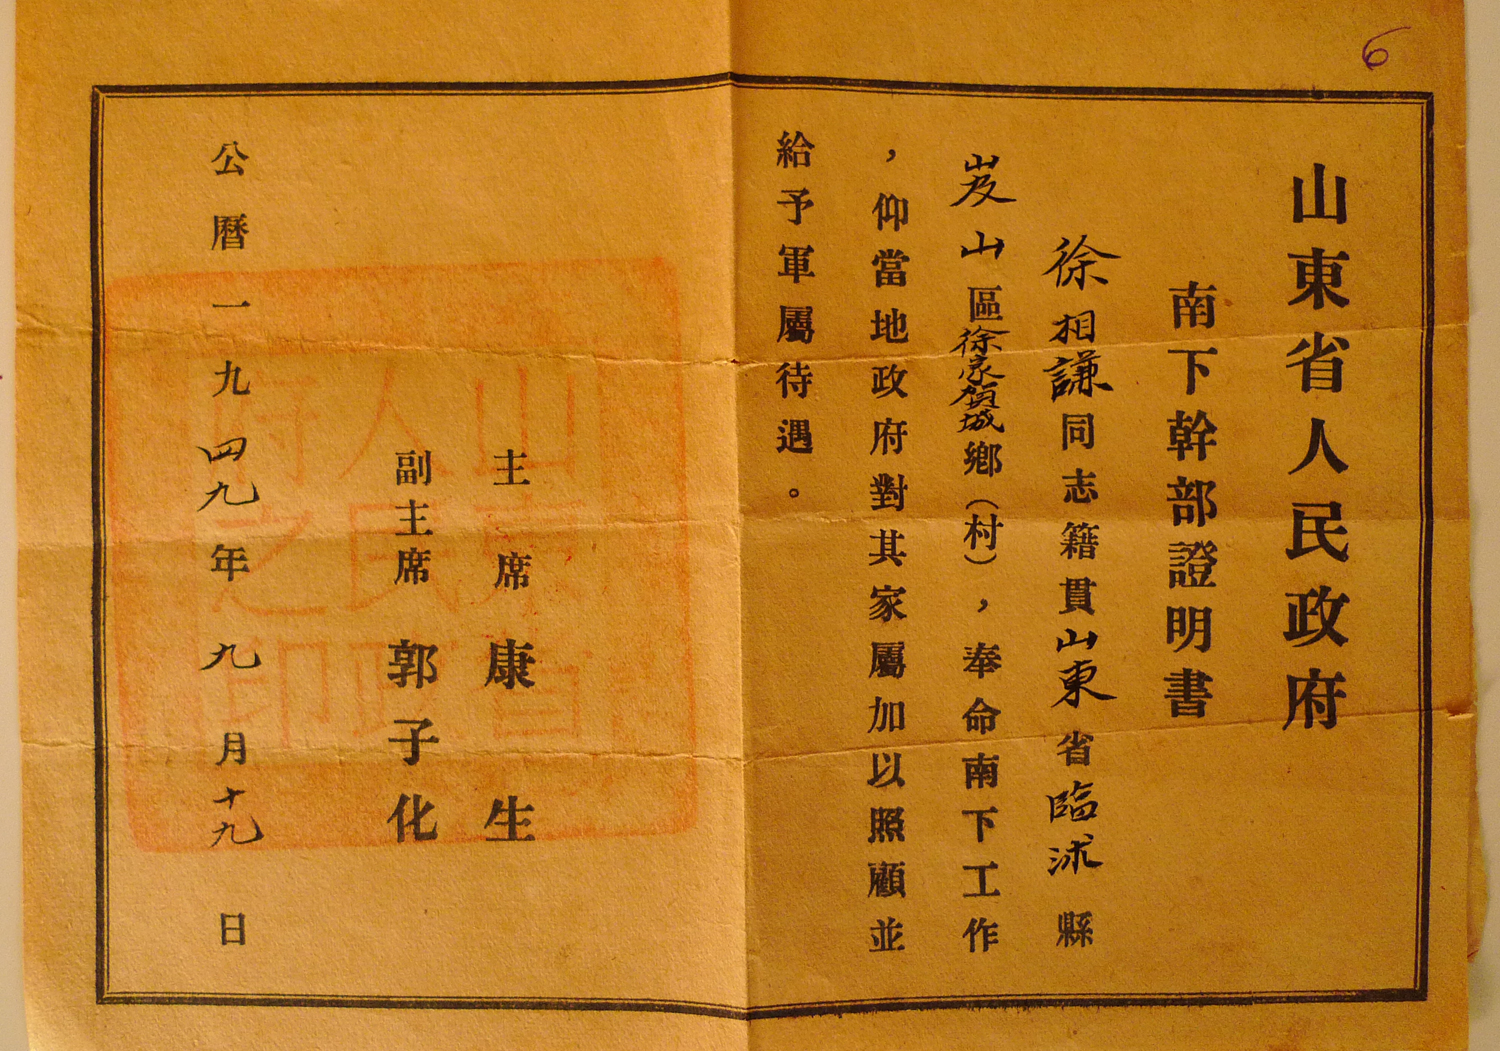 6
山東省人民政府
南下幹部證明書
徐相謙同志籍貫山東省臨沭縣
岌山區徐家嶺城鄉(村)，奉命南下工作
，仰當地政府對其家屬加以照顧並
給予軍屬待遇。
主席 康生
副主席 郭子化
公曆一九四九年九月十九日
山東省人民政府之印